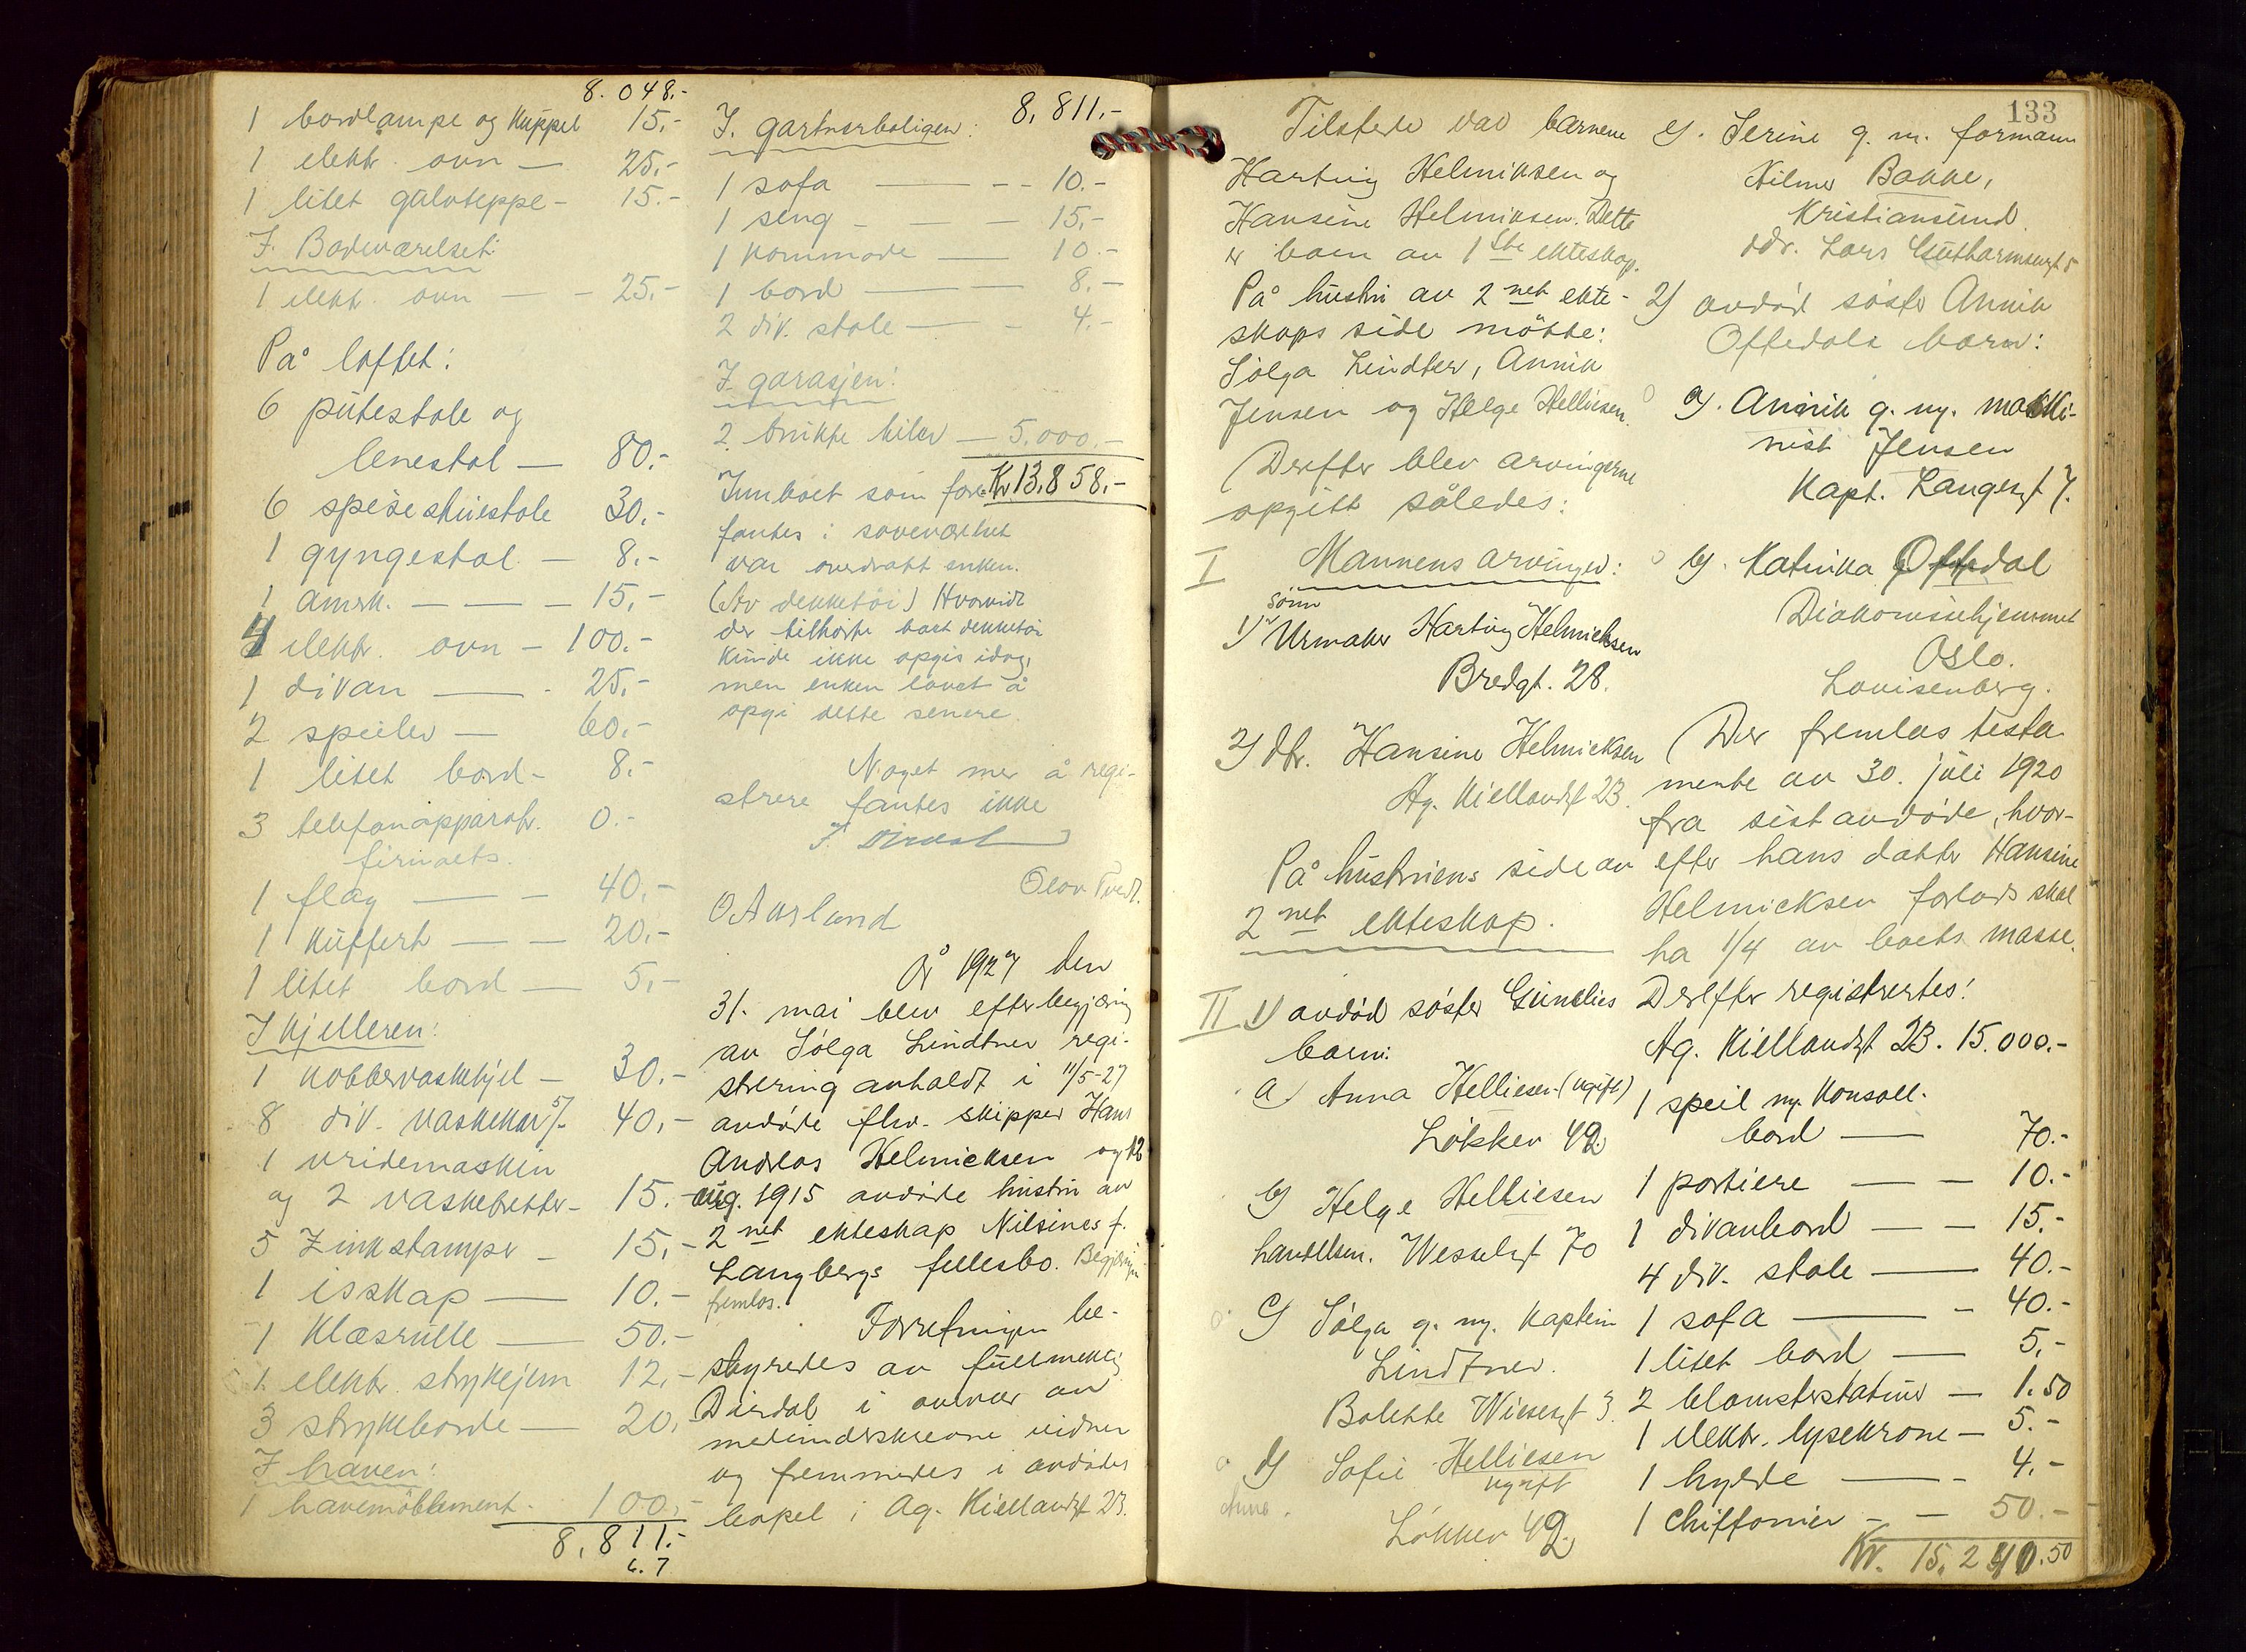 8.048.-
1 bordlampe og kuppel 15.-
1 elektr. ovn — 25.-
1 litet gulvteppe - 15.-
I. Badeværelset:
1 elektr. ovn — - 25.-
På loftet:
6 putestole og
lenestol — 80.-
6 spisestuestole 30.-
1 gyngestol — 8.-
1 amrk. — — — 15.-
4 elektr. ovn - 100.-
1 divan — - 25.-
2 speiler — 60.-
1 litet bord - 8.-
3 telefonapparatr. 0.-
1 flag — - 40.-
1 kuffert — — 20.-
1 litet bord — 5.-
I kjelleren:
1 kobbervaskekjel — 30.-
8 div. vaskekar 5/- 40.-
1 vridemaskin
og 2 vaskebretter - 15.-
5 Zinkstamper — 15.-
1 isskap — 10.-
1 Klæsrulle — 50.-
1 elektr. strykejern 12.-
3 strykeborde — 20.-
I haven:
1 havemöblement - 100.-
8,811.-
6.7
8,811.-
I. gartnerboligen:
1 sofa — - - 10.-
1 seng - — — 15.-
1 kommode — 10.-
1 bord — — 8.-
2 div. stole — - 4.-
I garasjen:
2 brukte biler — 5.000.-
Kr. 13,858.-
Innboet som fore-
fantes i soveværelset
var overdratt enken.
(Av dekketöi) Hvorvidt
der tilhörte boet dekketöi
kunde ikke opgis idag,
men enken lovet å
opgi dette senere.
Noget mer å regi-
strere fantes ikke
Olav Tvedt.
O Aarland
År 1927 den
31. mai blev efter begjæring
av Sólga Lindtner regi-
strering avholdt i 11/5-27
avdöde fhv. skipper Hans
Andreas Helmicksen og 12
aug. 1915 avdöde hustru av
2net ekteskap Nilsines f.
Langbergs fellesbo. Begjæringen
fremlos.
Forretningen be-
styredes av fullmektig
Dirdal i nærvær av
medunderskrevne vidner
og fremmedes i avdödes
bopel i Ag. Kiellandsgt 23.
133
Tilstede var barnene
Hartvig Helmiksen og
Hansine Helmiksen. Dette
er barn av 1ste ekteskap.
På hustru av 2net ekte-
skaps side mötte:
Sólga Lindtner, Annik
Jensen og Helge Helliesen.
Derefter blev arvingerne
opgitt således:
I Mannens arvinger:
sönn
1) Urmaker Hartvig Helmicksen
Bredgt. 28.
2) dtr. Hansine Helmicksen
Ag. Kiellandsgt 23.
På hustruens side av
2net ekteskap.
II 1) avdöd söster Gunelies
barn:
a) Anna Helliesen (ugift)
Lökkev 42
b) Helge Helliesen
handelsm. Wesselsgt 70
c) Sólga g. m. kaptein
Lindtner.
Bolette Wiesesgt 3.
d) Sofie Helliesen
ugift
Lökkev 42
e). Serine g. m. formann
Hilmer Bakke,
Kristiansund.
adr. Lars Gutharmsengt 5
2) avdöd söster Annik
Oftedals barn:
a). Annik g. m. maski-
nist Jensen
Kapt. Langesgt 7.
b). Katinka Oftedal
Diakonissehjemmet
Oslo.
Lovisenberg.
Der fremlas testa-
mente av 30. juli 1920
fra sistavdöde, hvor-
efter hans datter Hansine
Helmicksen forlods skal
ha 1/4 av boets masse.
Derefter registrertes:
Ag. Kiellandsgt 23. 15.000.-
1 speil m. konsoll-
bord — 70.-
1 portiere — — 10.-
1 divanbord — — 15.-
4 div. stole — 40.-
1 sofa — - 40.-
1 litet bord — 5.-
2 blomsterstativer — 1.50
1 elektr. lysekrone — 5.-
1 hylde — - 4.-
1 chiffonier - — 50.-
Kr. 15.240.50